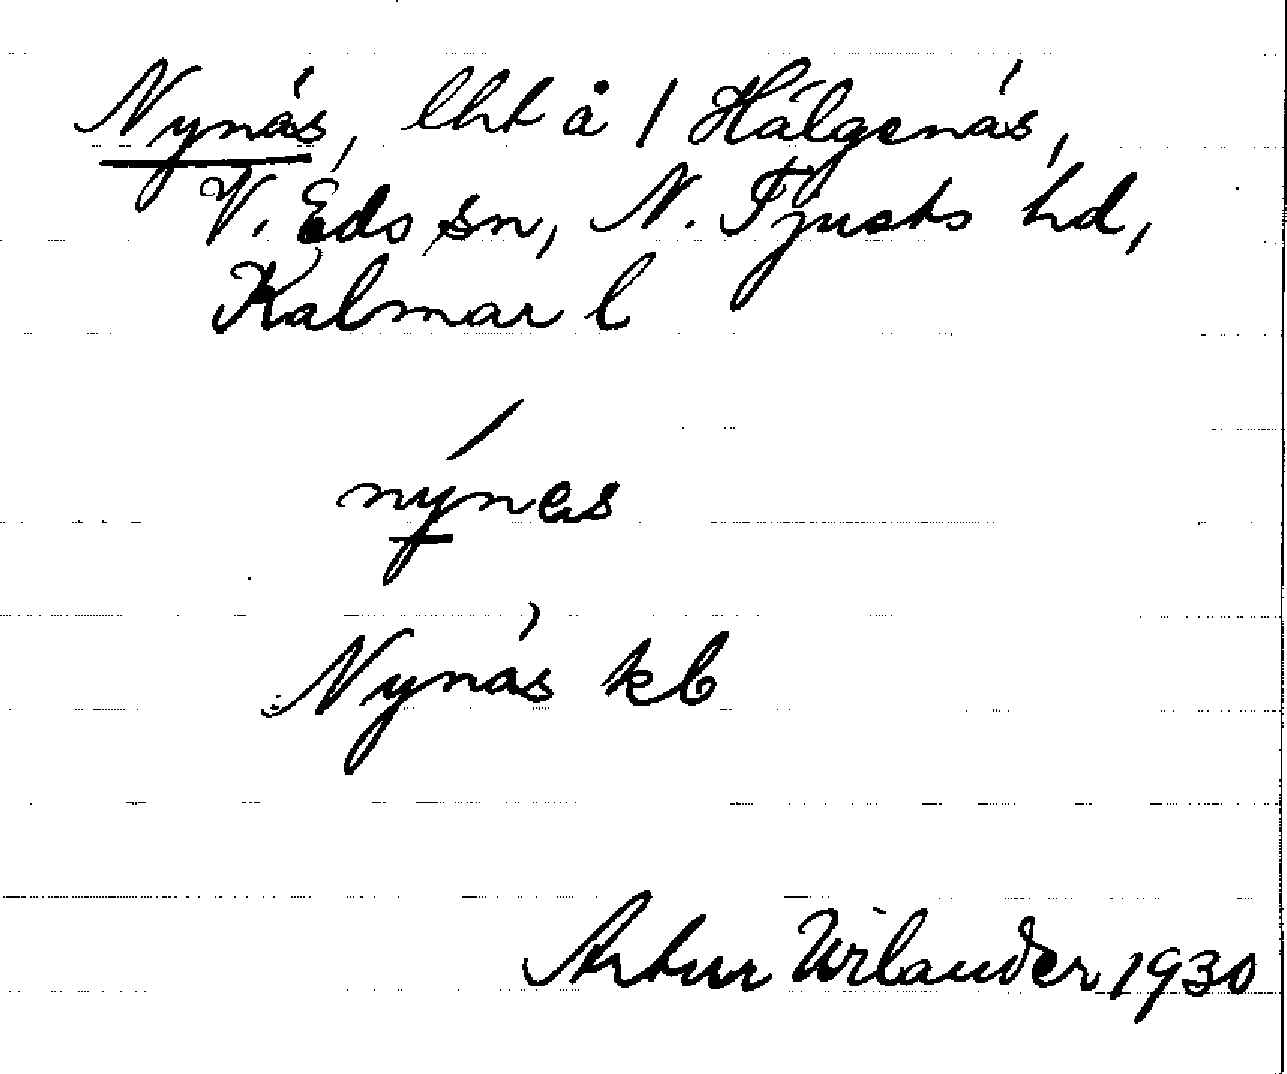 Nynäs, lht å 1 Hälgenäs,
V. Eds sn, N. Tjusts hd,
Kalmar l
nýnas
Nynäs kb
Artur Wilander 1930